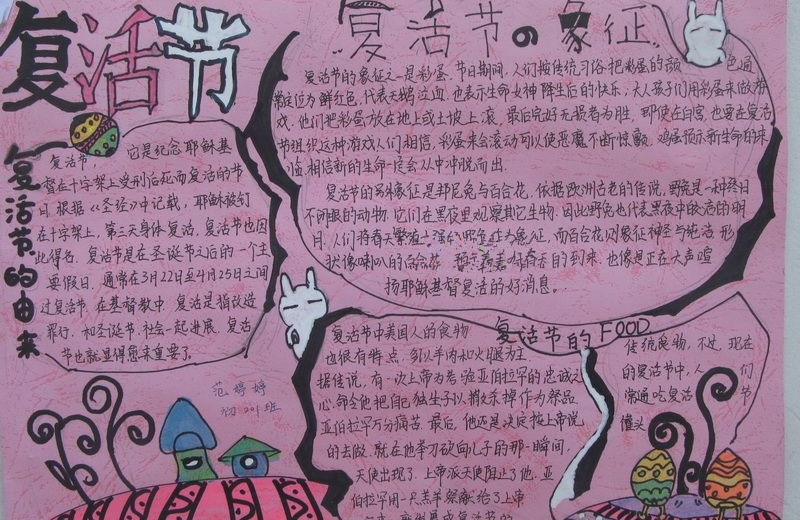 复活节
复活节的由来
复活节 它是纪念耶稣基
督在十字架上受刑治死而复活的节
日.根据《圣经》中记载,耶稣被钉
在十字架上,第三天身体复活,复活节也因
此得名.复活节是在圣诞节之后的一个主
要假日.通常在3月22日至4月25日之间
过复活节,在基督教中,复活是指改造
罪行.和圣诞节,社会一起进展,复活
节也就显得愈来重要了.
范婷婷
初201班
“复活节の象征”
复活节的象征之一是彩蛋.节日期间,人们按传统习俗把彩蛋的颜色通
常定位为鲜红色,代表天鹅泣血,也表示生命女神降生后的快乐;大人孩子们用彩蛋来做游
戏.他们把彩蛋放在地上或土坡上滚,最后完好无损者为胜,即使在白宫,也要在复活
节组织这种游戏人们相信,彩蛋来会滚动可以使恶魔不断惊颤,鸡蛋预示新生命的来
临,相信新的生命一定会从中冲脱而出.
复活节的另外象征是邦尼兔与百合花,依据欧洲古老的传说,野兔是一种终日
不闭眼的动物,它们在黑夜里观察其它生物,因此野兔也代表黑夜中皎洁的明
月,人们将春天繁殖 野兔作为象征,而百合花则象征神圣与纯洁,形
状像喇叭的 的到来,也像是正在大声喧
扬耶稣基督复活的好消息.
复活节的FOOD
复活节中美国人的食物
也很有特点,多以羊肉和火腿为主
据传说,有一次上帝为考验亚伯拉罕的忠诚之
心,命令他把自己独生子以撒杀掉作为祭品
亚伯拉罕万分痛苦.最后,他还是决定按上帝说
的去做.就在他举刀砍向儿子的那一瞬间,
天使出现了.上帝派天使阻止了他.亚
伯拉罕用一只羔羊祭献给了上帝
传统食物,不过,现在
的复活节中,人们
常通吃复活节
馒头